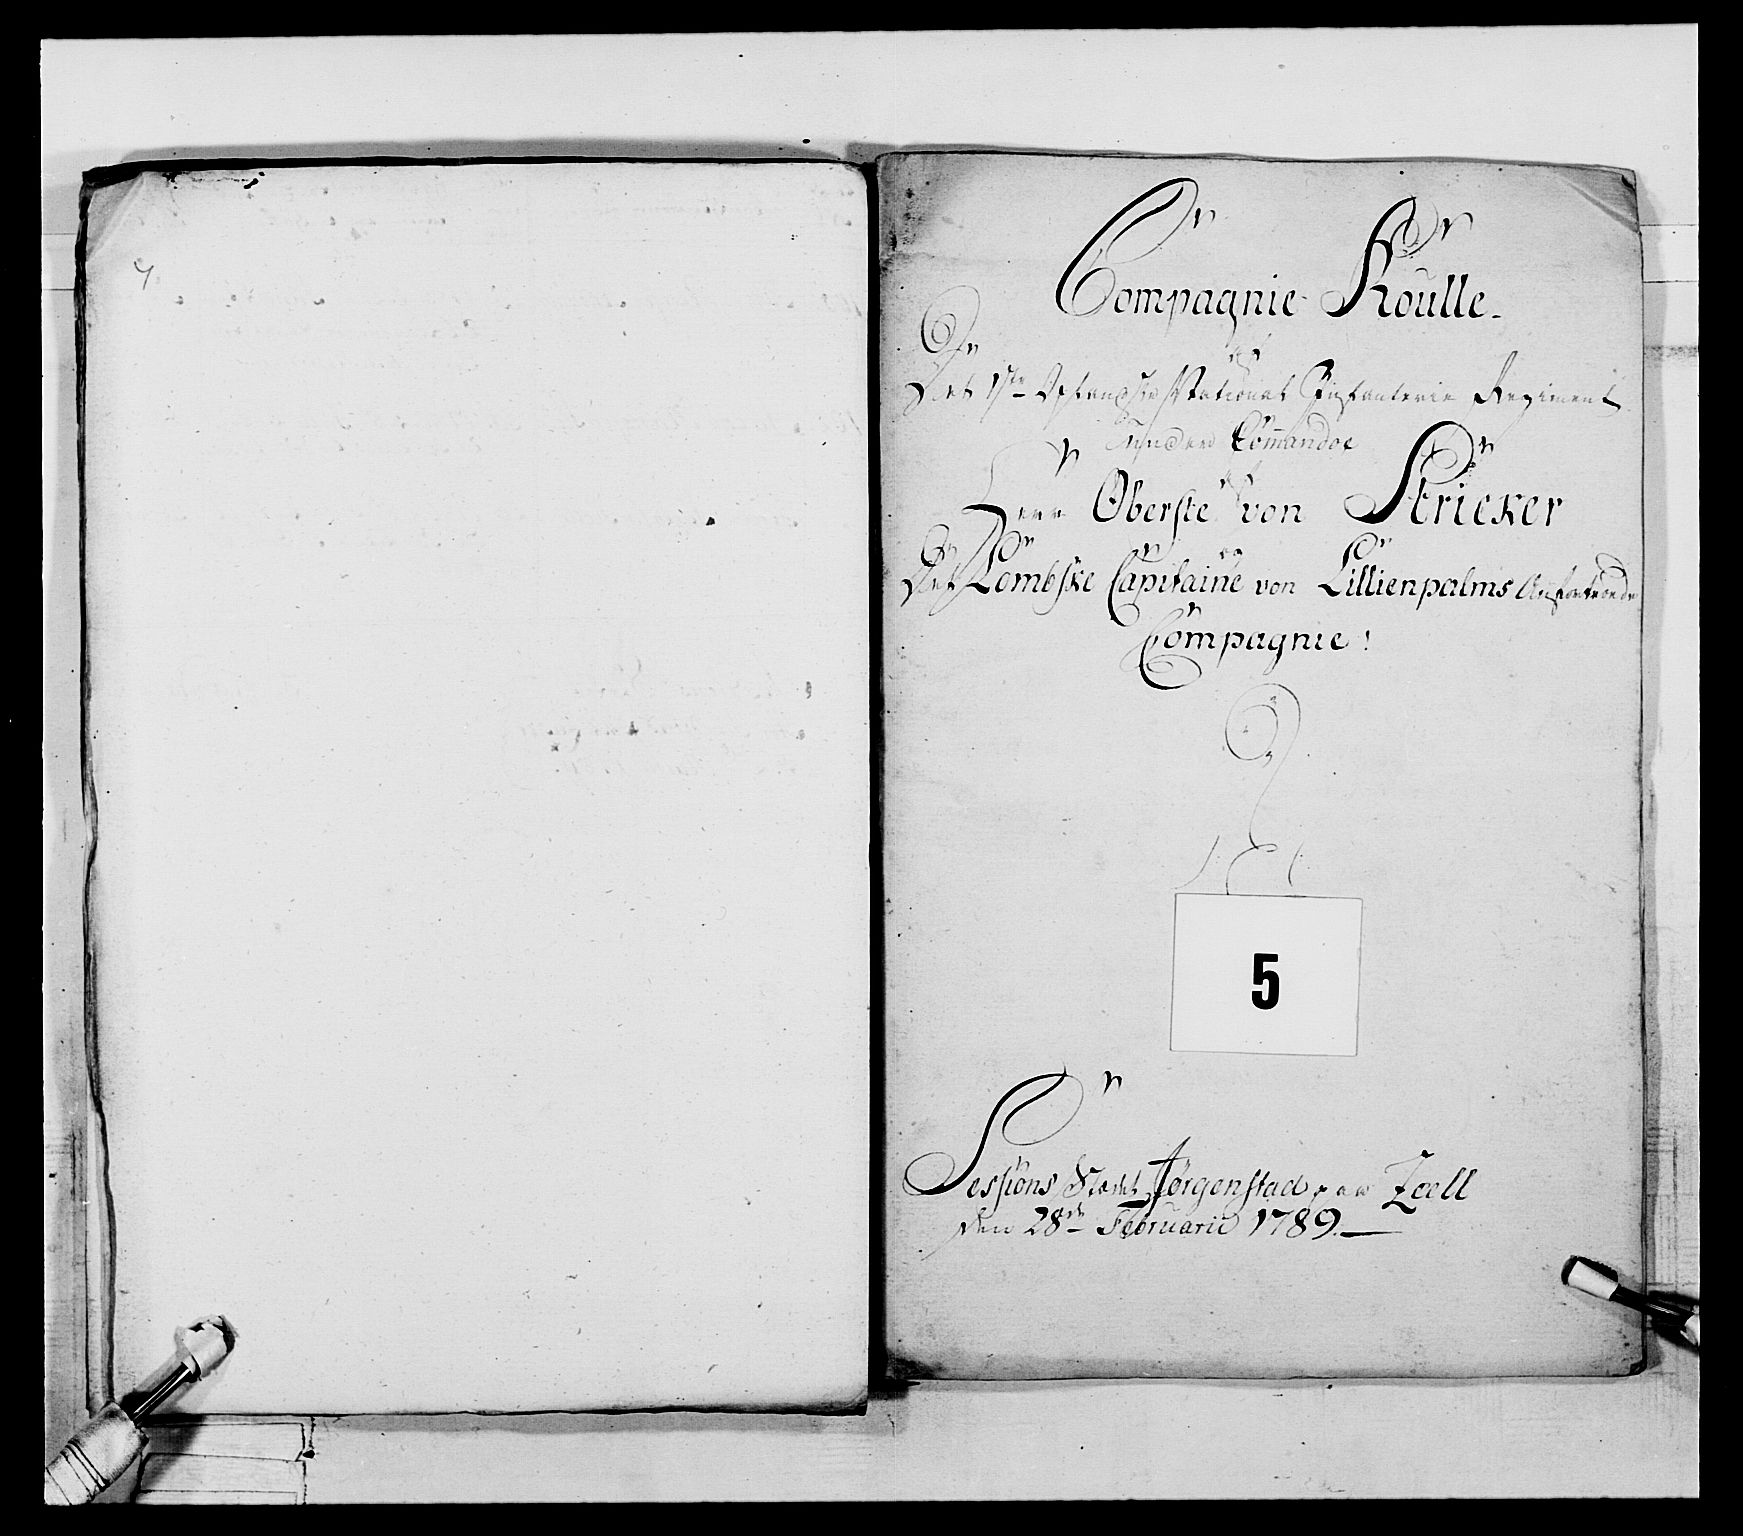 Compagnie Roulle.
af
Det 1ste Oplandske National Infanterie Regiment
under Commando
af
Herr Oberste von Stricker
og
Det Lombske Capitaine von Lillienpalms Anfortroede
Compagnie!
5
Sessions Stædet Jørgenstad paa Zoell
den 28de Februarii 1789.